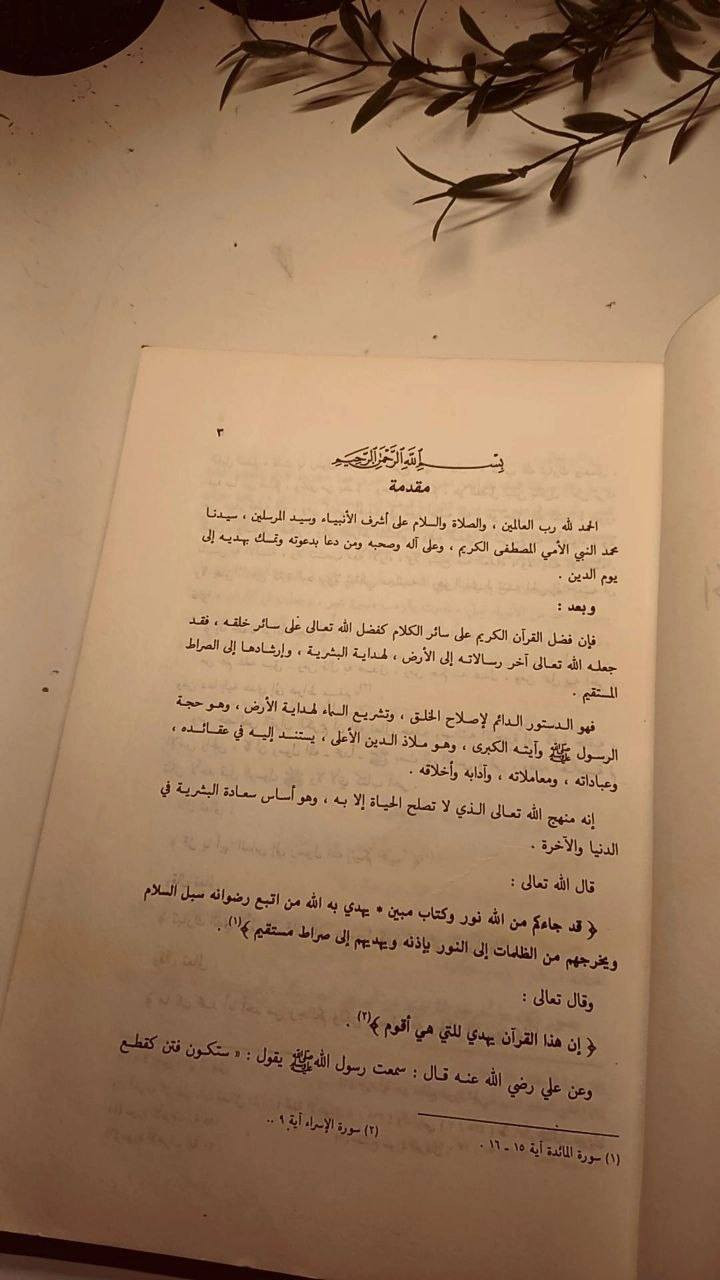 ٣
بسم الله الرحمن الرحيم
مقدمة
الحمد لله رب العالمين ، والصلاة والسلام على أشرف الأنبياء وسيد المرسلين ، سيدنا
محمد النبي الأمي المصطفى الكريم ، وعلى آله وصحبه ومن دعا بدعوته وتمسك بهديه إلى
يوم الدين .
وبعد :
فإن فضل القرآن الكريم على سائر الكلام كفضل الله تعالى على سائر خلقه ، فقد
جعله الله تعالى آخر رسالاته إلى الأرض ، لهداية البشرية ، وإرشادها إلى الصراط
المستقيم .
فهو الدستور الدائم لإصلاح الخلق ، وتشريع السماء لهداية الأرض ، وهو حجة
الرسول ﷺ وآيته الكبرى ، وهو ملاذ الدين الأعلى ، يستند إليه في عقائده ،
وعباداته ، ومعاملاته ، وآدابه وأخلاقه .
إنه منهج الله تعالى الذي لا تصلح الحياة إلا به ، وهو أساس سعادة البشرية في
الدنيا والآخرة .
قال الله تعالى :
﴿ قد جاءكم من الله نور وكتاب مبين * يهدي به الله من اتبع رضوانه سبل السلام
ويخرجهم من الظلمات إلى النور بإذنه ويهديهم إلى صراط مستقيم ﴾(١) .
وقال تعالى :
﴿ إن هذا القرآن يهدي للتي هي أقوم ﴾(٢) .
وعن علي رضي الله عنه قال : سمعت رسول الله ﷺ يقول : « ستكون فتن كقطع
(١) سورة المائدة آية ١٥ ـ ١٦ . (٢) سورة الإسراء آية ٩ ..